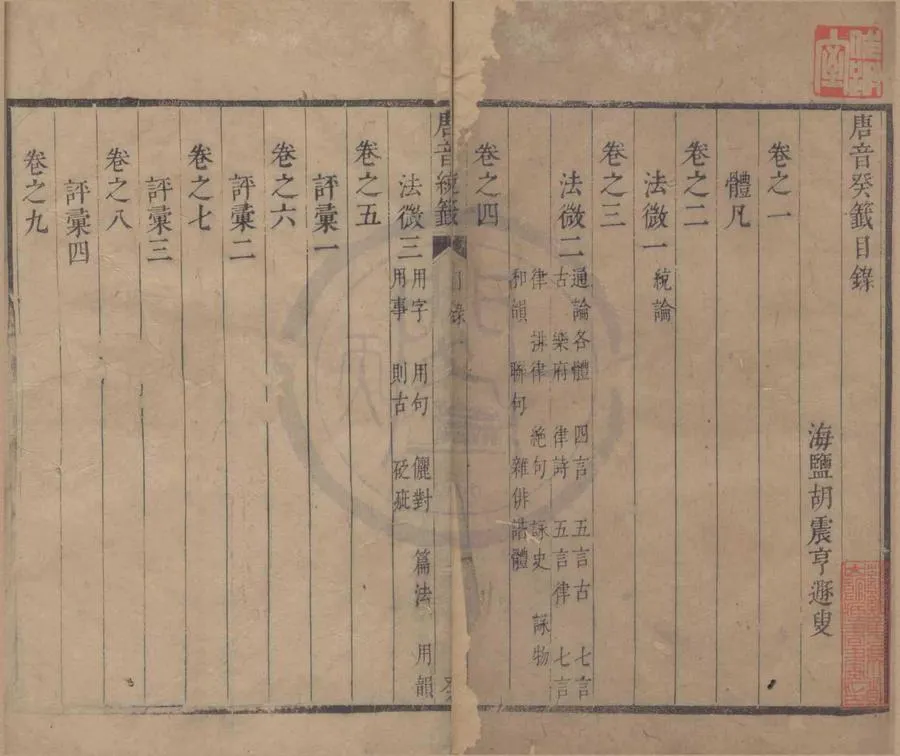 唐音癸籤目錄
海鹽胡震亨遯叟
卷之一
體凡
卷之二
法微一 統論
卷之三
法微二 通論各體 四言 五言古 七言
古 樂府 律詩 五言律 七言
律 排律 絶句 詠史 詠物
和韻 聯句 雜俳諧體
卷之四
唐音統籤 目錄一
法微三 用字 用句 儷對 篇法 用韻
用事 則古 砭疵
卷之五
評彙一
卷之六
評彙二
卷之七
評彙三
卷之八
評彙四
卷之九